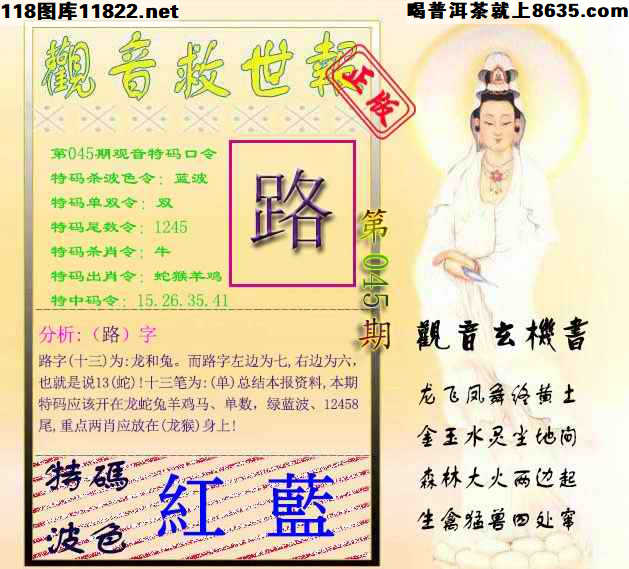 118图库11822.net
喝普洱茶就上8635.com
觀音救世報
正版
第045期观音特码口令
特码杀波色令：蓝波
特码单双令：双
特码尾数令：1245
特码杀肖令：牛
特码出肖令：蛇猴羊鸡
特中码令：15.26.35.41
路
第045期
分析:（路）字
路字(十三)为:龙和兔。而路字左边为七,右边为六,
也就是说13(蛇)!十三笔为:(单)总结本报资料,本期
特码应该开在龙蛇兔羊鸡马、单数，绿蓝波、12458
尾,重点两肖应放在(龙猴)身上!
特碼
波色
紅 藍
觀音玄機書
龙飞凤舞终黄土
金玉水灵尘地间
森林大火两边起
生禽猛兽四处窜